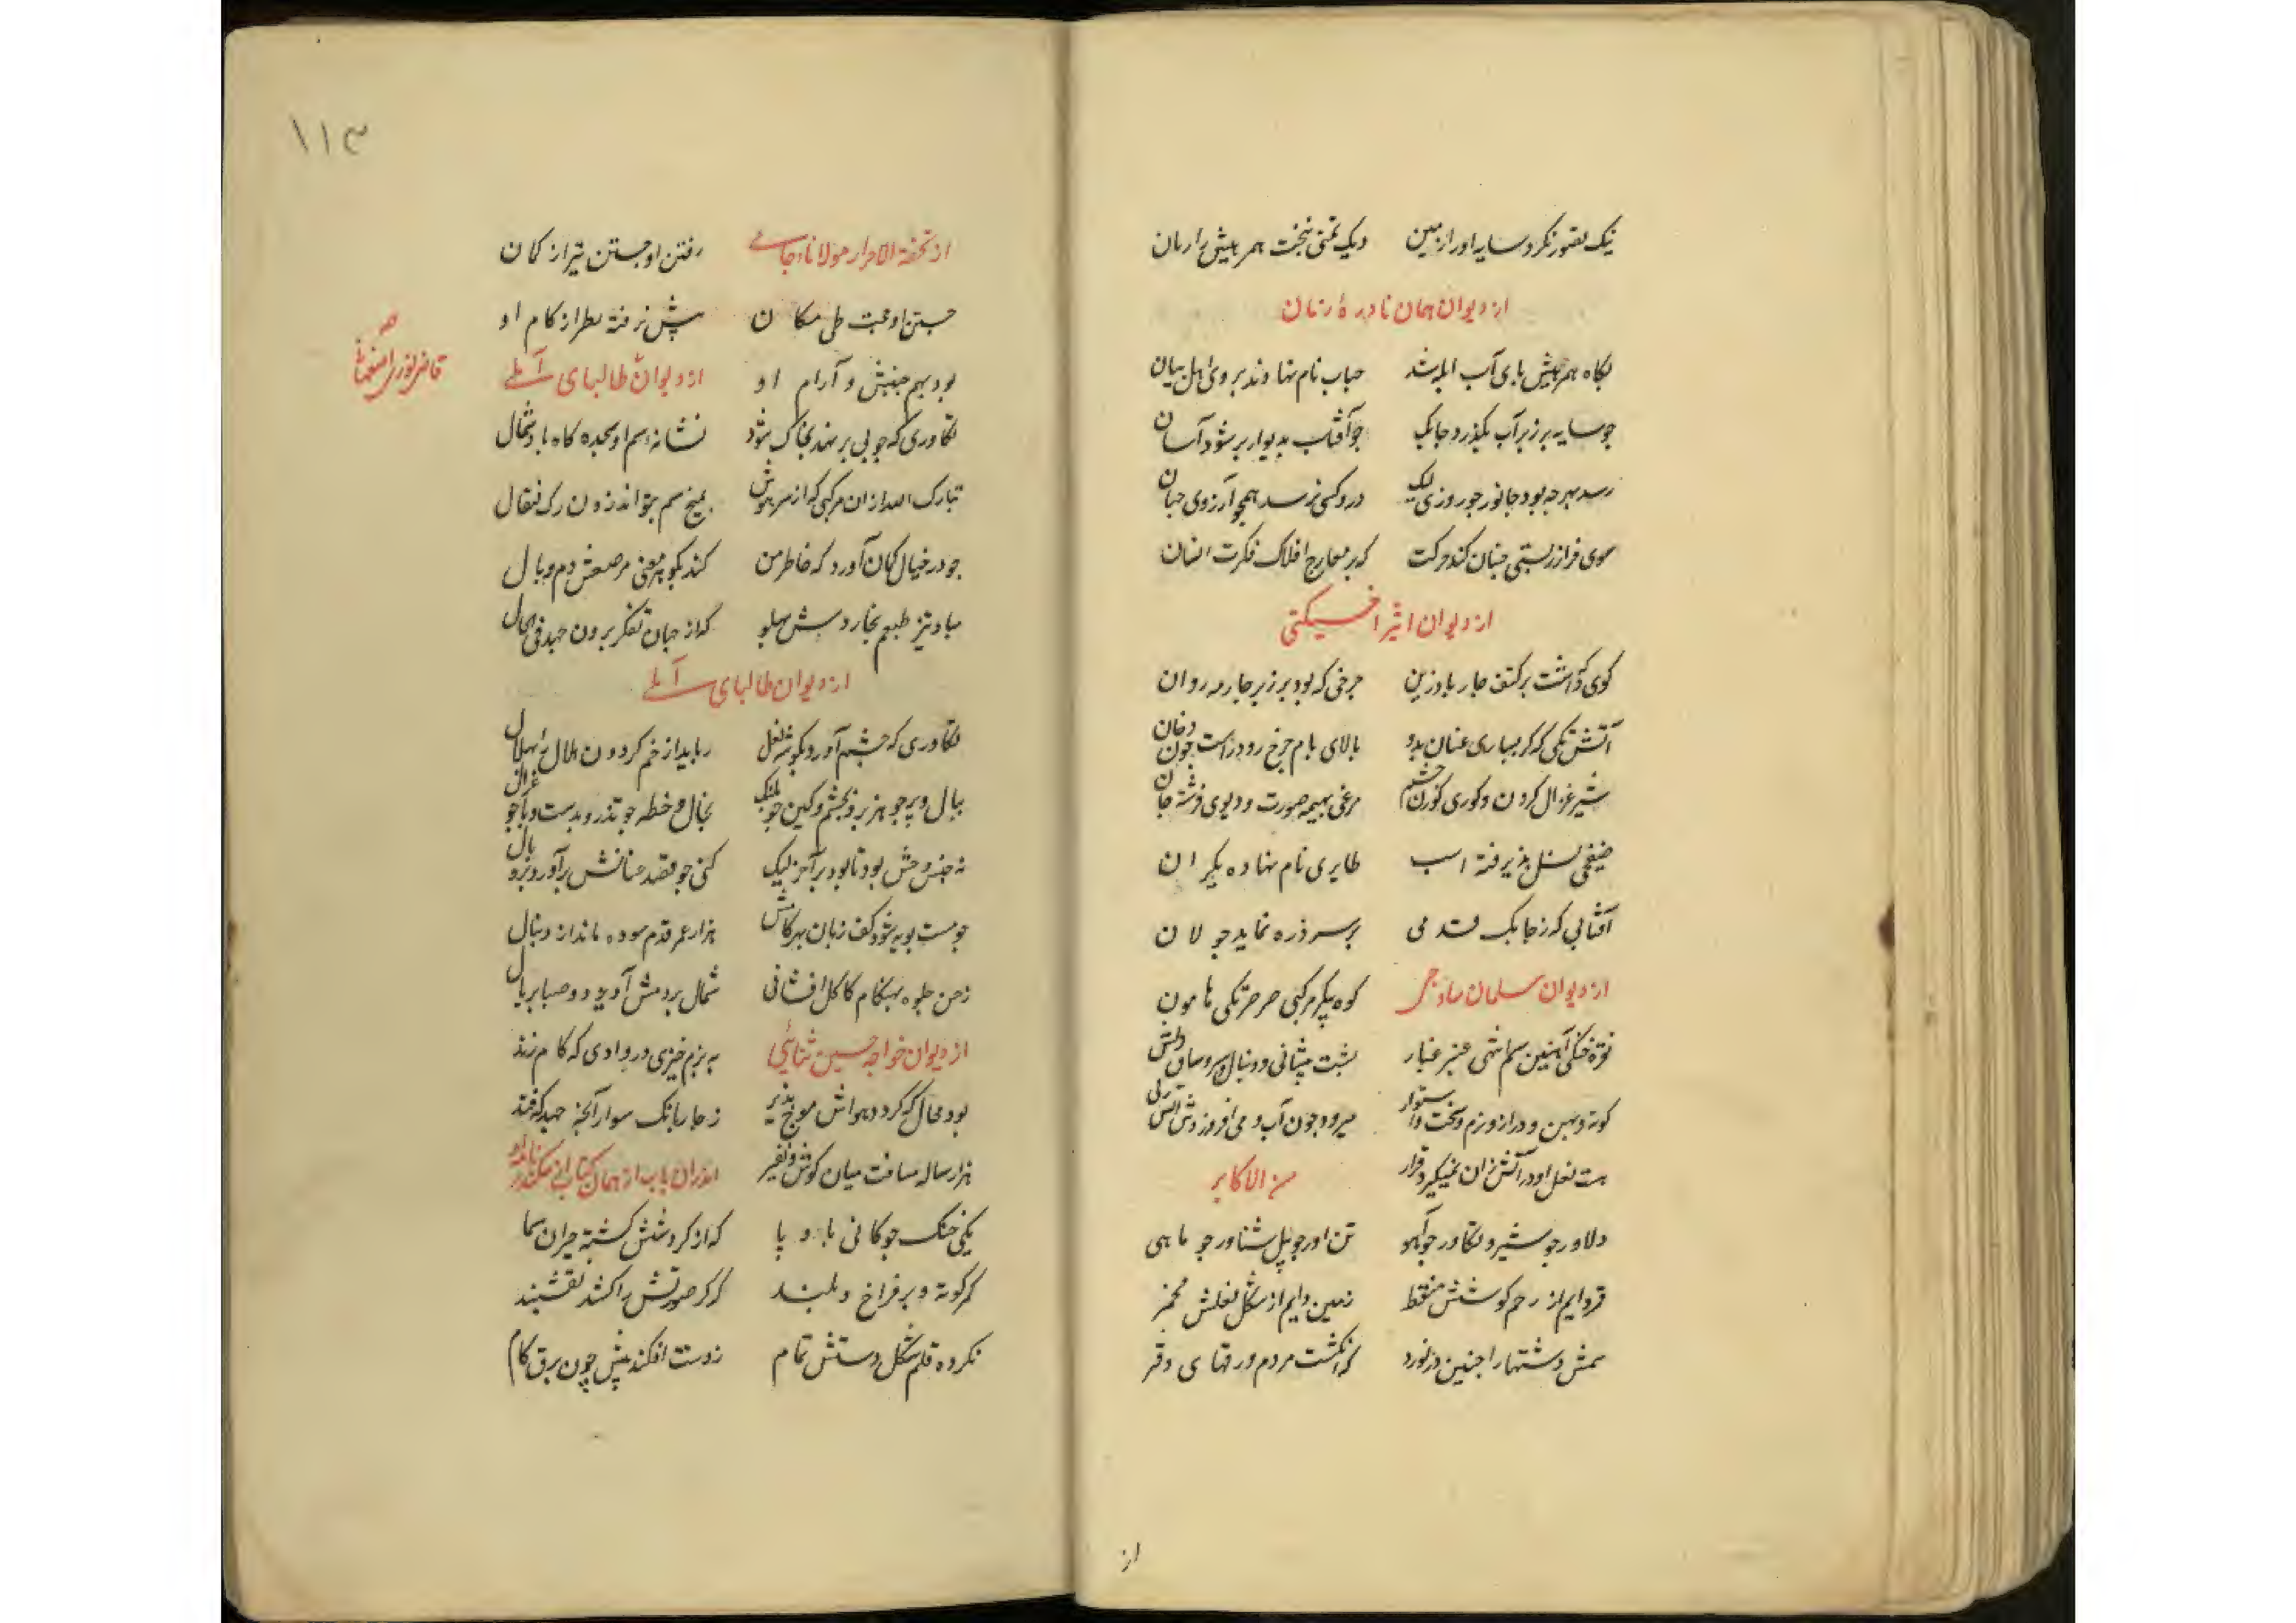 نیک تصور نکرد سایه او را زمین دیک تمنی نپخت همرهیش را زمان
از دیوان همان نادرهٔ زمان
بگاه همرهیش پای آب ابله شد حباب نام نهادند بروی اهل بیان
چو سایه بر زبر آب بگذرد چابک چو آفتاب بدیوار بر شود آسان
رسد بهرچه بود جانور چو روزی لیک درو کسی نرسد همچو آرزوی جهان
سوی فراز ز پستی چنان کند حرکت که بر معارج افلاک فکرت انسان
از دیوان اثیر اخسیکتی
کوی که داشت بر کتف چار باد زین چرخی که بود بر زبر چار مه روان
آتش تکی که گر بسپاری عنان بدو بالای بام چرخ رود راست چون دخان
شیر غزال گردن و گوری گوزن چشم مرغی بهیمه صورت و دیوی فرشته جان
ضیغمی نسل پذیرفته اسب طایری نام نهاده یکران
آفتابی که ز چابک قدمی بر سر ذره نماید جولان
از دیوان سلمان ساوجی کوه پیکر مرکبی صرصر تکی هامون
نقره خنگی آهنین سم اشهی عنبر عذار پشت پیشانی و دنبال و سر و ساق
کوته و پهن و دراز و نرم و سخت و استوار میرود چون آب و می افروزدش آتش
هست نعل او در آتش زان نمیگیرد قرار من الاکابر
دلاور چو شیر و تکاور چو آهو تن اور چو پیل شناور چو ماهی
قر دایم از زحم کوشش منقط زمین دایم از شکل نعلش مخبر
سمش دشتها را چنین در نورد که انگشت مردم ورقهای دفتر
از
۱۱۳
از تحفة الاحرار مولانا جامی رفتن او جستن تیر از کمان
جستن او طی مکان پیش نرفته نظر از کام او
بود بهم جنبش و آرام او از دیوان طالبای آملی
قاضی نوری اصفهانی
تکاوری که چو پی بر نهد بخاک شود نشانه سم او سجده گاه باد شمال
تبارک الله ازان مرکبی که از سر هوش بمیخ سم بتواند زدن رک قیفال
چو در خیال گمان آورد که خاطر من کند بکوهر معنی مرصعش دم و یال
مباد تیز طبعم بخاردش پهلو که از جهان تفکر برون جهد فی الحال
از دیوان طالبای آملی
تکاوری که چشم آورد بگوشه نعل رباید از خم گردون هلال را بهلال
بیال و پر چو هزبر و بخشم و کین چو پلنگ بخال و خطه چو تذرو و بدست و پا چو غزال
نه جنس وحش بود تا بود بر آخر لیک کنی چو قصد عنانش برآورد پر و بال
چو مست پویه شود کف زنان بهر گامش هزار عمر قدم سوده ماند از دنبال
ز حسن جلوه بهنگام کاکل افشانی شمال بر دمش آویزد و صبا بر یال
از دیوان خواجه حسین ثنائی به بزم خیزی در وادی که کام زند
بود محال که گردد هواش موج پذیر ز چار بانک سوار آنچه جهد که فتد
هزار ساله مسافت میان گوش و نفیر اندران باب از همان کتاب اعنی سکندرنامه
یکی خنک چوگانی باد پا که از گردشش گشته حیران سما
کمر کوته و بر فراخ و بلند گر صورتش را کشد نقشبند
نکرده قلم شکل دستش تمام ز دست افکند پیش چون برق کام